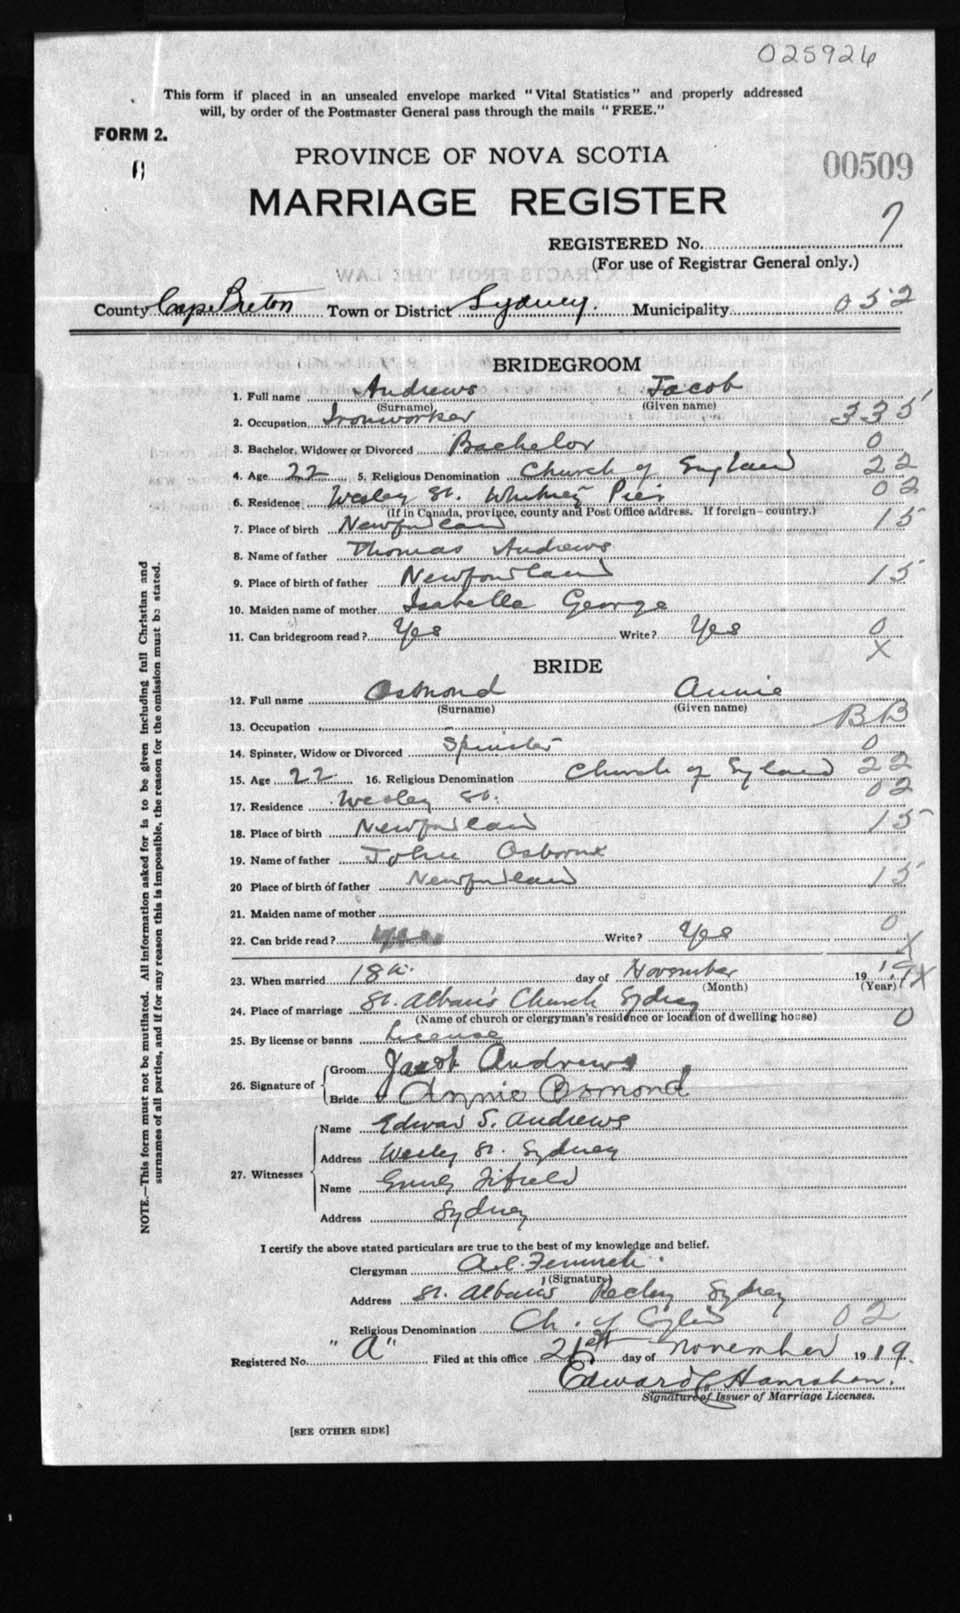 025926
This form if placed in an unsealed envelope marked "Vital Statistics" and properly addressed
will, by order of the Postmaster General pass through the mails "FREE."
FORM 2.
PROVINCE OF NOVA SCOTIA
00509
MARRIAGE REGISTER
REGISTERED No. 7
(For use of Registrar General only.)
County Cape Breton Town or District Sydney. Municipality 052
BRIDEGROOM
1. Full name Andrews Jacob
(Surname) (Given name)
2. Occupation Ironworker 335
3. Bachelor, Widower or Divorced Bachelor 0
4. Age 22 5. Religious Denomination Church of England 22
6. Residence Wesley St. Whitney Pier 02
(If in Canada, province, county and Post Office address. If foreign—country.)
7. Place of birth Newfoundland 15
8. Name of father Thomas Andrews
9. Place of birth of father Newfoundland 15
10. Maiden name of mother Isabella George
11. Can bridegroom read? Yes Write? Yes 0
X
BRIDE
12. Full name Osmond Annie
(Surname) (Given name)
13. Occupation BB
14. Spinster, Widow or Divorced Spinster 0
15. Age 22 16. Religious Denomination Church of England 22
17. Residence Wesley St. 02
18. Place of birth Newfoundland 15
19. Name of father John Osborne
20 Place of birth of father Newfoundland 15
21. Maiden name of mother
22. Can bride read? Yes Write? Yes 0
X
23. When married 18th day of November 1919 X
(Month) (Year)
24. Place of marriage St. Alban's Church Sydney
(Name of church or clergyman's residence or location of dwelling house) 0
25. By license or banns License
26. Signature of Groom Jacob Andrews
Bride Annie Osmond
27. Witnesses
Name Edward S. Andrews
Address Wesley St. Sydney
Name Emily Fifield
Address Sydney
I certify the above stated particulars are true to the best of my knowledge and belief.
Clergyman
(Signature)
Address St. Alban's Rectory Sydney
Religious Denomination Ch. of England 02
Registered No. "A" Filed at this office 21st day of November 1919.
Edward C Hanrahan.
Signature of Issuer of Marriage Licenses.
[SEE OTHER SIDE]
NOTE.—This form must not be mutilated. All information asked for is to be given including full Christian and
surnames of all parties, and if for any reason this is impossible, the reason for the omission must be stated.